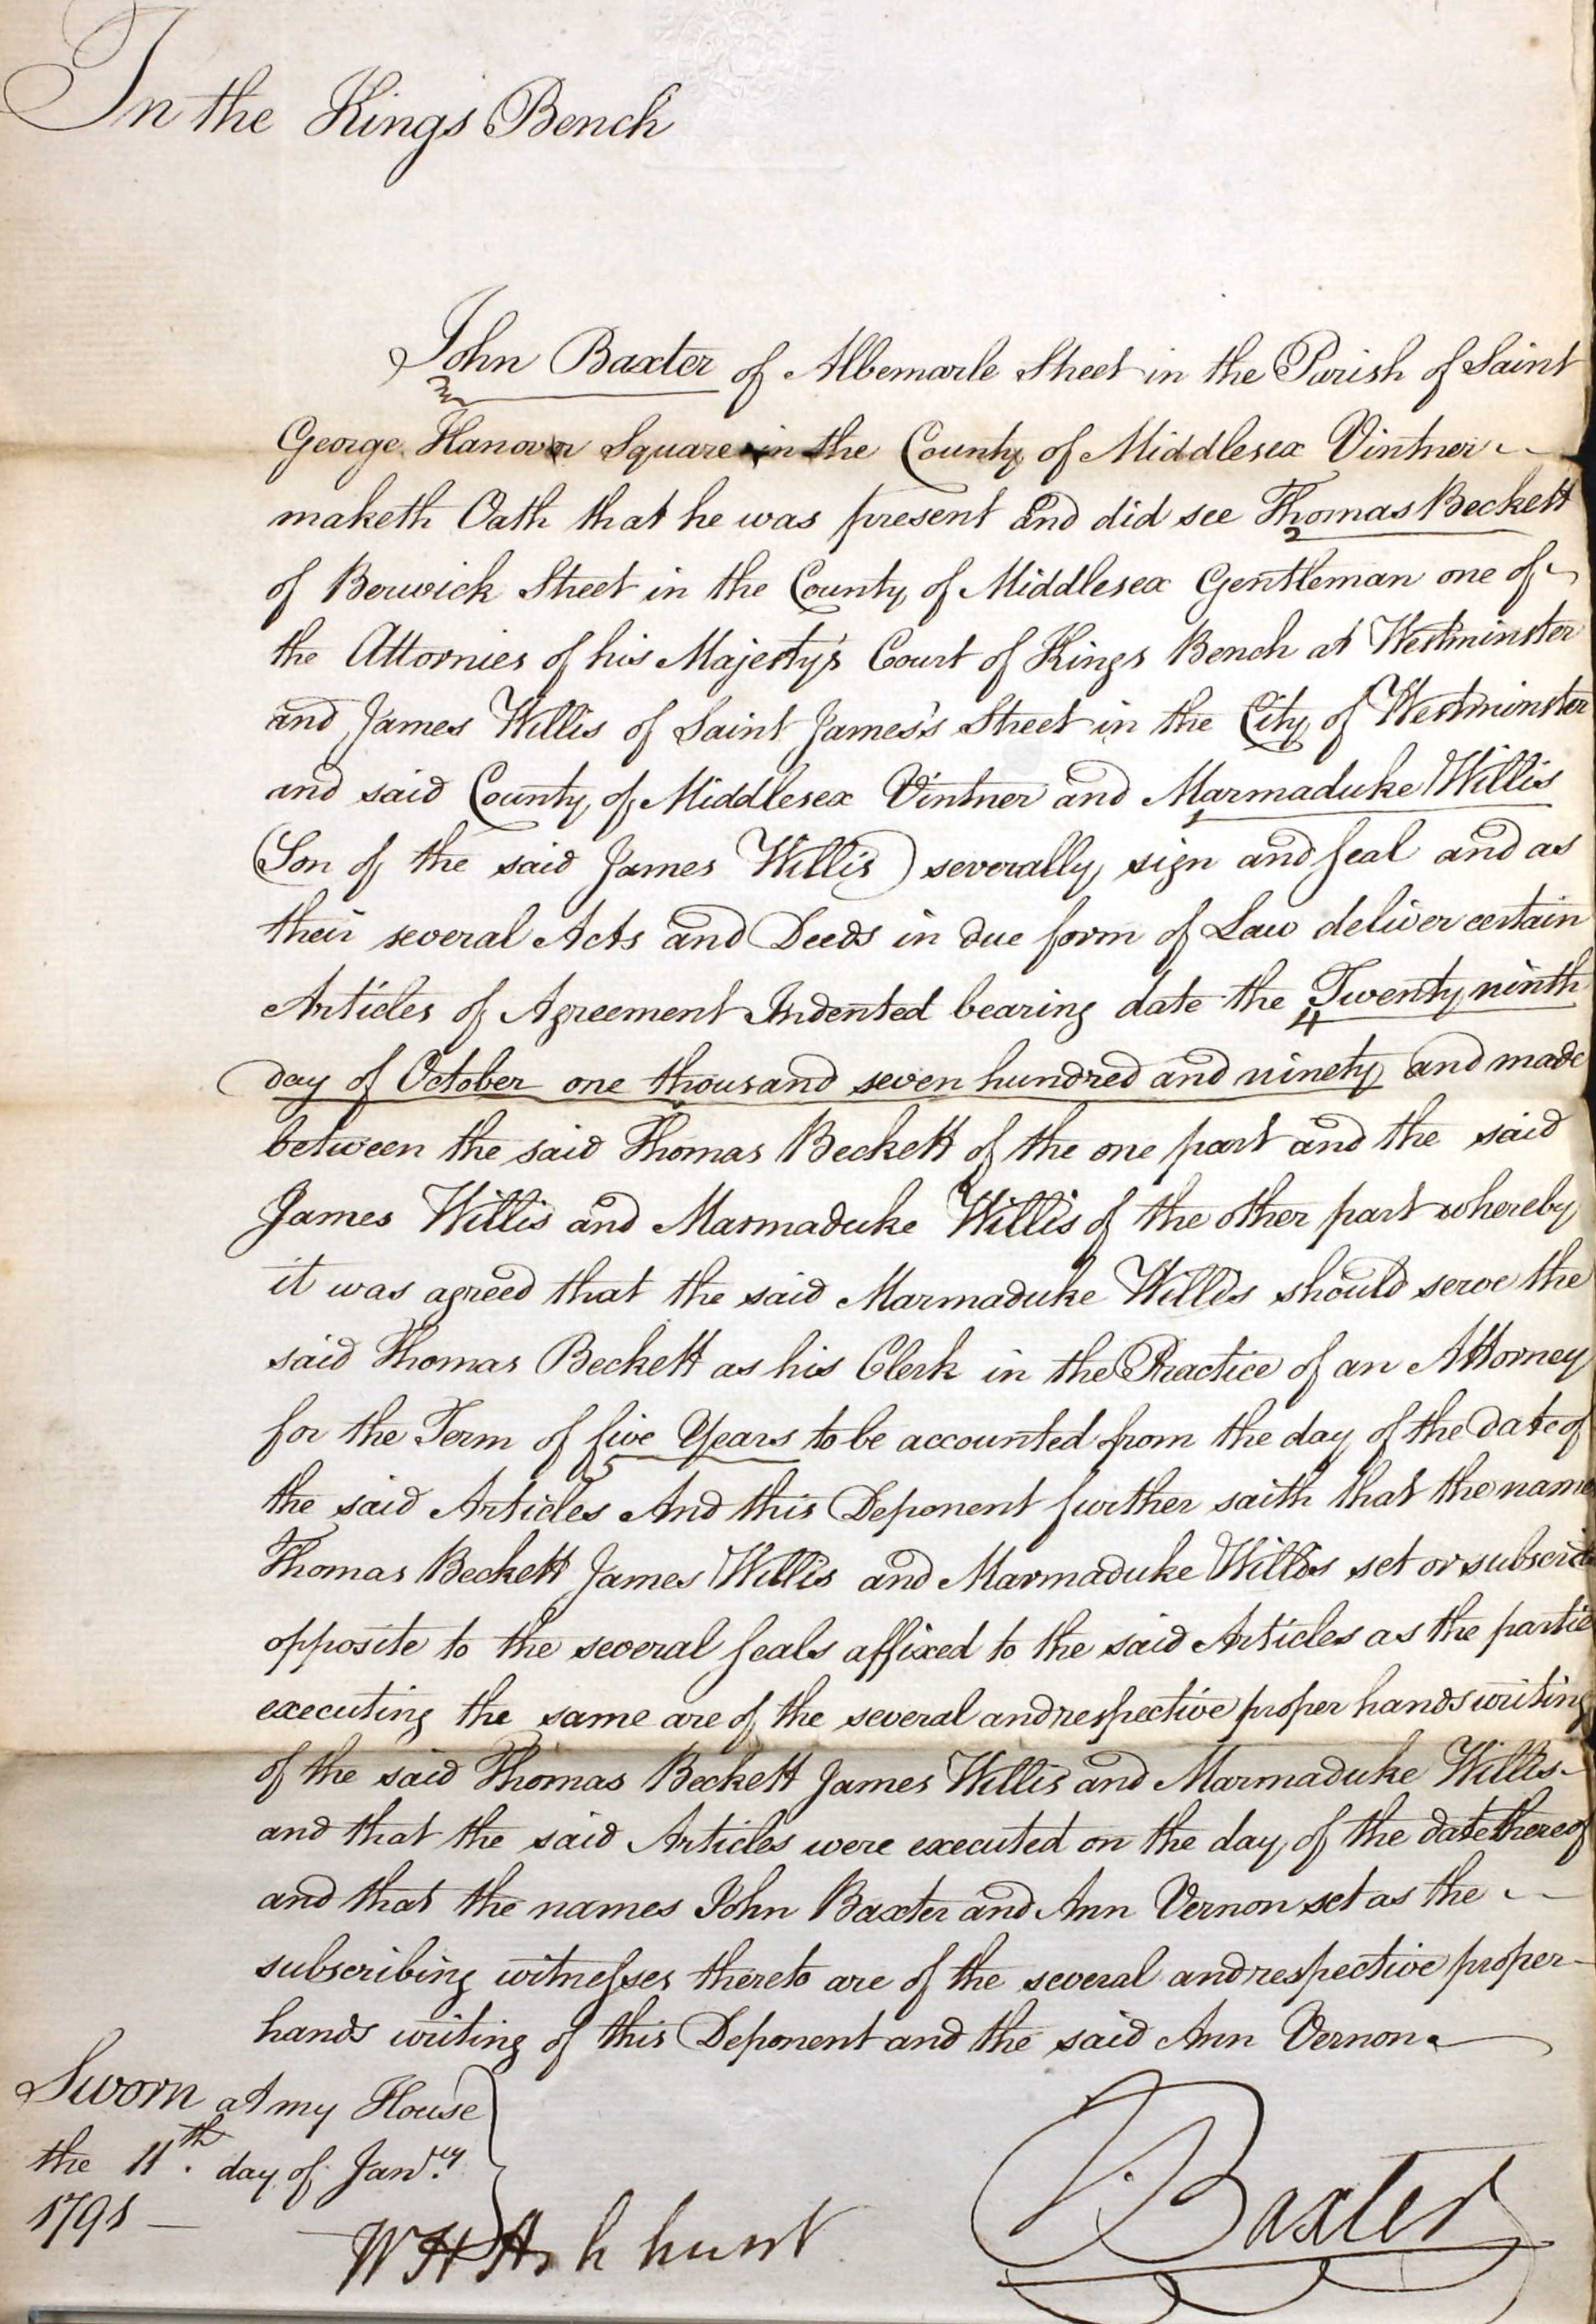 In the Kings Bench
John Baxter of Albemarle Street in the Parish of Saint
George Hanover Square in the County of Middlesex Vintner
maketh Oath that he was present and did see Thomas Beckett
of Berwick Street in the County of Middlesex Gentleman one of
the Attornies of his Majesty's Court of Kings Bench at Westminster
and James Willis of Saint James's Street in the City of Westminster
and said County of Middlesex Vintner and Marmaduke Willis
(Son of the said James Willis) severally sign and seal and as
their several Acts and Deeds in due form of Law deliver certain
Articles of Agreement Indented bearing date the Twenty ninth
day of October one thousand seven hundred and ninety and made
between the said Thomas Beckett of the one part and the said
James Willis and Marmaduke Willis of the other part whereby
it was agreed that the said Marmaduke Willis should serve the
said Thomas Beckett as his Clerk in the Practice of an Attorney
for the Term of five Years to be accounted from the day of the date of
the said Articles And this Deponent further saith that the name
Thomas Beckett James Willis and Marmaduke Willis set or subscri
opposite to the several seals affixed to the said Articles as the partie
executing the same are of the several and respective proper hands writing
of the said Thomas Beckett James Willis and Marmaduke Willis
and that the said Articles were executed on the day of the date thereof
and that the names John Baxter and Ann Vernon set as the
subscribing witnesses thereto are of the several and respective proper
hands writing of this Deponent and the said Ann Vernon
Sworn at my House
the 11th. day of Janry
1791
W H Ashhurst
J. Baxter